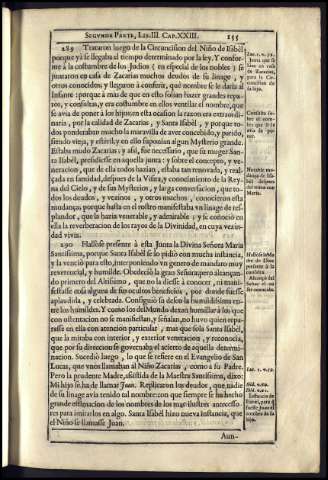 SEGVNDA PARTE, LIB. III. CAP. XXIII. 155
289 Trataron luego de la Circuncision del Niño de Isabèl,
porque yà se llegaba al tiempo determinado por la ley. Y confor-
me à la costumbre de los Judios (en especial de los nobles) se
juntaron en casa de Zacarias muchos deudos de su linage, y
otros conocidos; y llegaron à conferir, què nombre se le daria al
Infante: porque à mas de que en ello solian hazer grandes repa-
ros, y consultas, y era costumbre en ellos ventilar el nombre, que
se avia de poner à los hijos: en esta ocasion la razon era extraordi-
naria, por la calidad de Zacarias, y Santa Isabèl, y porque to-
dos ponderaban mucho la maravilla de aver concebido, y parido,
siendo vieja, y esteril; y en ello suponian algun Mysterio grande.
Estaba mudo Zacarias; y assi, fue necessario, que su muger San-
ta Isabèl, presidiesse en aquella junta: y sobre el concepto, y ve-
neracion, que de ella todos hazian, estaba tan renovada, y real-
çada en santidad, despues de la Visita, y conocimiento de la Reyna
del Cielo, y de sus Mysterios, y larga conversacion, que to-
dos los deudos, y vezinos, y otros muchos, conocieron esta
mudança; porque hasta en el rostro manifestaba vn linage de res-
plandor, que la hazia venerable, y admirable; y se conociò en
ella la reverberacion de los rayos de la Divinidad, en cuya vezin-
dad vivia.
290 Hallòse presente à esta Junta la Divina Señora Maria
Santissima, porque Santa Isabèl se lo pidiò con mucha instancia,
y la venciò para esto, interponiendo vn genero de mandato muy
reverencial, y humilde. Obedeciò la gran Señora; pero alcançan-
do primero del Altissimo, que no la diesse à conocer, ni mani-
festasse cosa alguna de sus ocultos beneficios, por donde fuesse
aplaudida, y celebrada. Consiguiò su deseo la humildissima en-
tre los humildes. Y como los del Mundo dexan humillar à los que
con ostentacion no se manifiestan, y señalan, no huvo quien repa-
rasse en ella con atencion particular, mas que sola Santa Isabèl,
que la miraba con interior, y exterior veneracion, y reconocia,
que por su direccion se governaba el acierto de aquella determi-
nacion. Sucediò luego, lo que se refiere en el Evangelio de San
Lucas, que vnos llamaban al Niño Zacarias, como à su Padre.
Pero la prudente Madre, assistida de la Maestra Santissima, dixo:
Mi hijo se ha de llamar Juan. Replicaron los deudos, que nadie
de su linage avia tenido tal nombre: con que siempre se ha hecho
grande estimacion de los nombres de los mas ilustres antecesso-
res para imitarlos en algo. Santa Isabèl hizo nueva instancia, que
el Niño se llamasse Juan.
Aun-